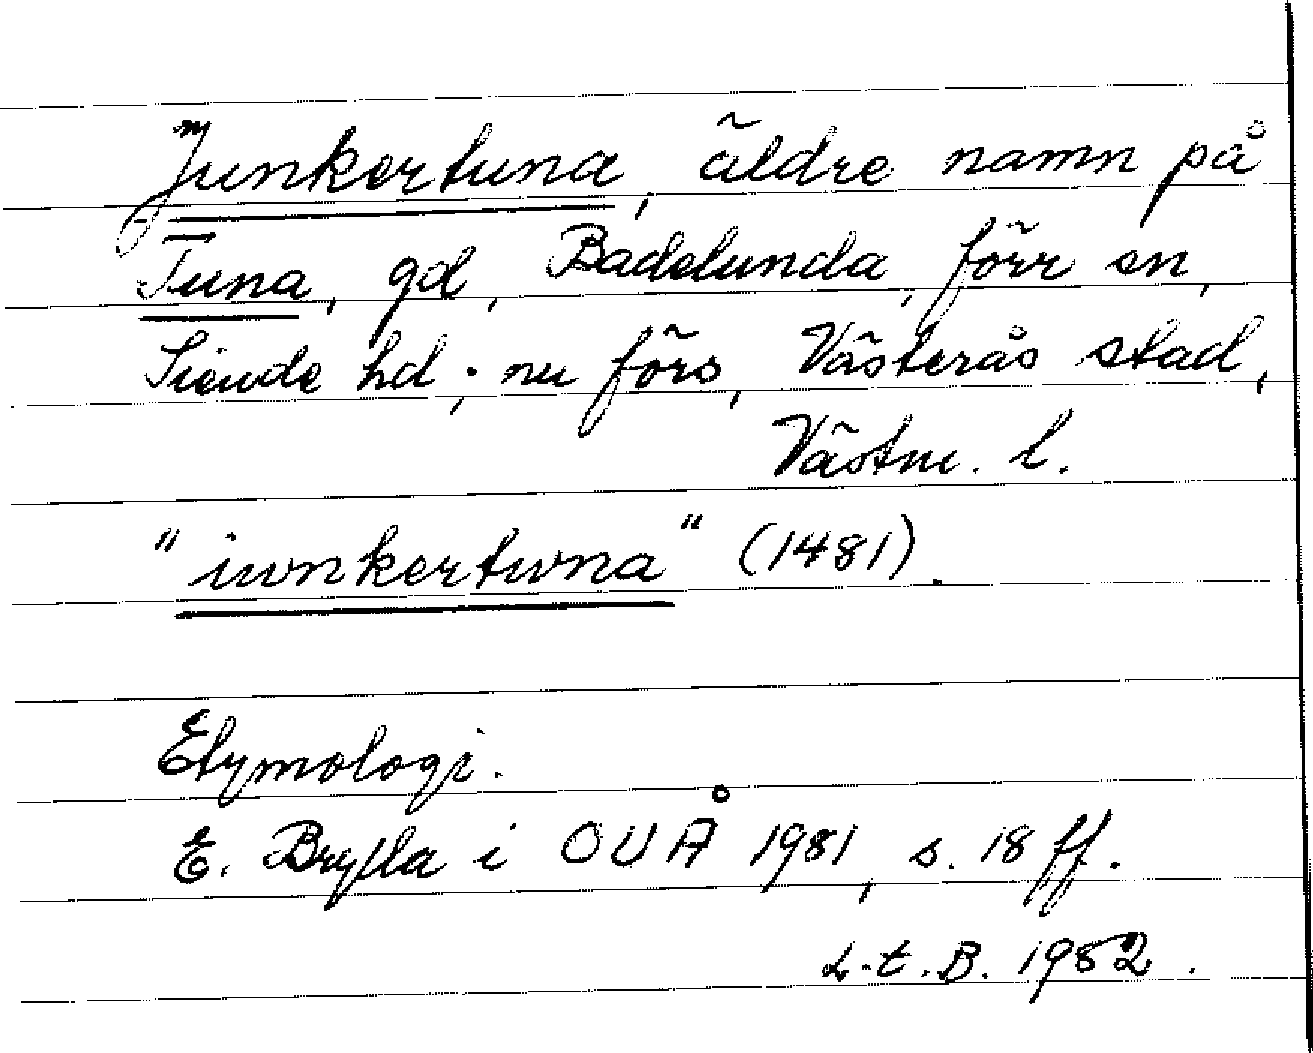 Junkertuna, äldre namn på
Tuna, gd, Badelunda, förr sn,
Siende hd; nu förs, Västerås stad,
Västm. l.
"iwnkertwna" (1481).
Etymologi.
E. Brylla i OUÅ 1981, s. 18 ff.
L.t.B. 1982.